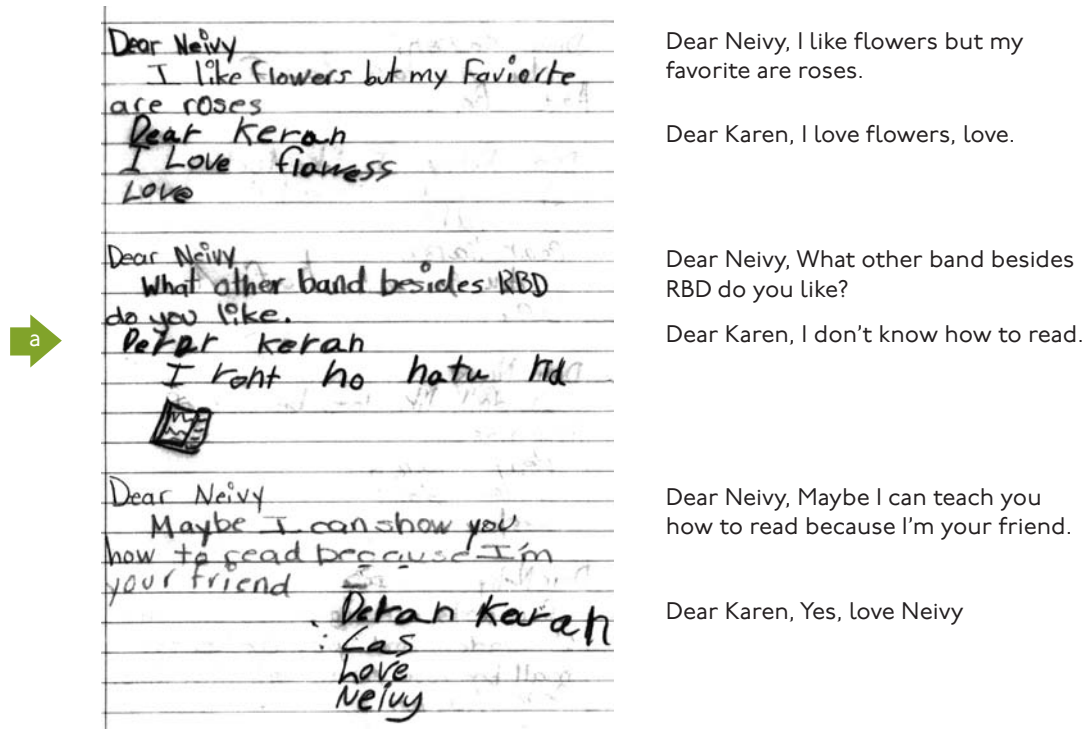 Dear Neivy
I like flowers but my Faviorte
are roses
Dear Keran
I Love flowess
Love
Dear Neivy
What other band besides RBD
do you like.
Derar keran
I ront ho hatu rid
Dear Neivy
Maybe I can show you
how to read because I'm
your friend
Deran Karan
Cas
Love
Neivy
Dear Neivy, I like flowers but my
favorite are roses.
Dear Karen, I love flowers, love.
Dear Neivy, What other band besides
RBD do you like?
a
Dear Karen, I don't know how to read.
Dear Neivy, Maybe I can teach you
how to read because I'm your friend.
Dear Karen, Yes, love Neivy